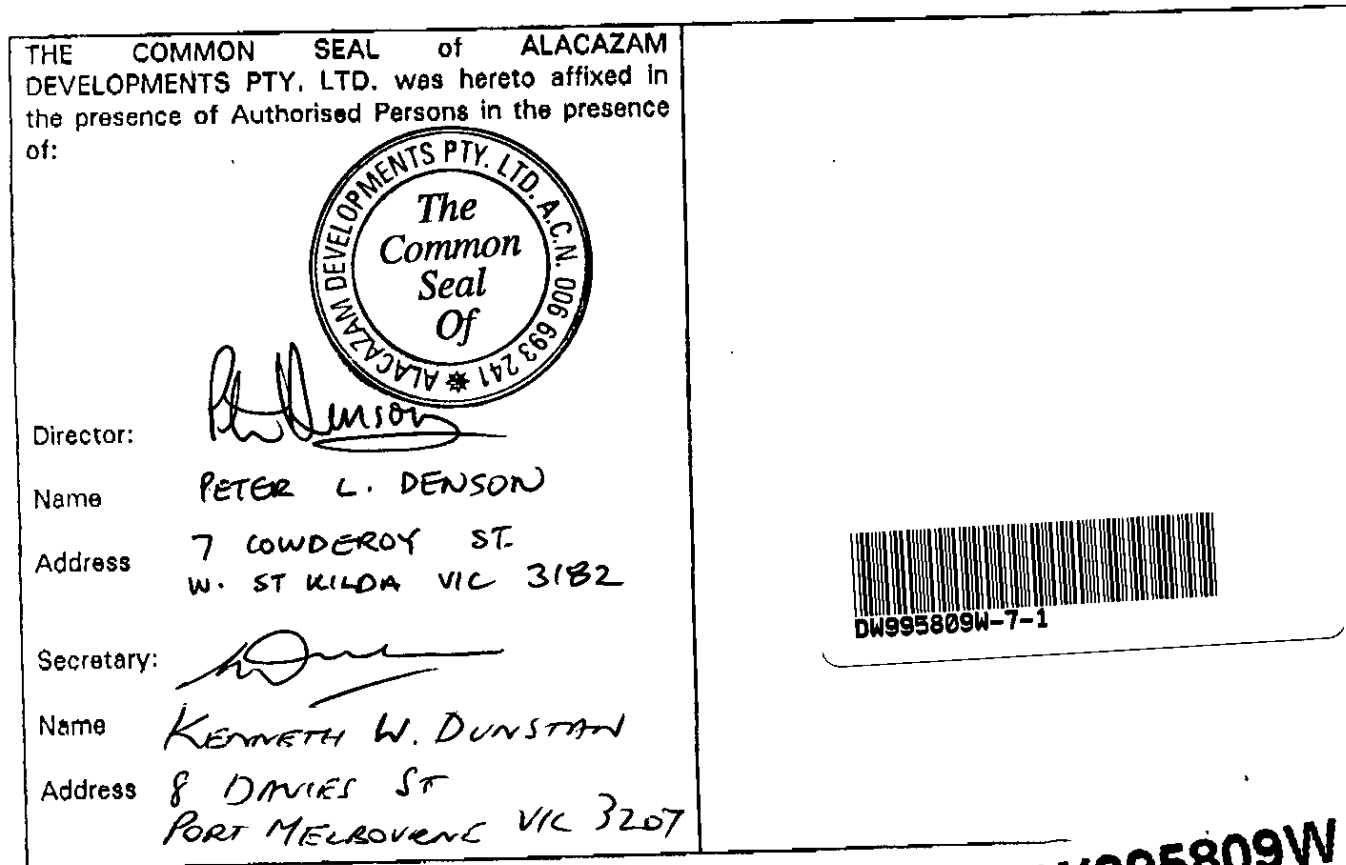 THE COMMON SEAL of ALACAZAM
DEVELOPMENTS PTY. LTD. was hereto affixed in
the presence of Authorised Persons in the presence
of:
ALACAZAM DEVELOPMENTS PTY. LTD. A.C.N. 006 693 241
The
Common
Seal
Of
Director:
Name PETER L. DENSON
Address 7 COWDEROY ST.
W. ST KILDA VIC 3182
Secretary:
Name KENNETH W. DUNSTAN
Address 8 DAVIES ST
PORT MELBOURNE VIC 3207
DW995809W-7-1
995809W